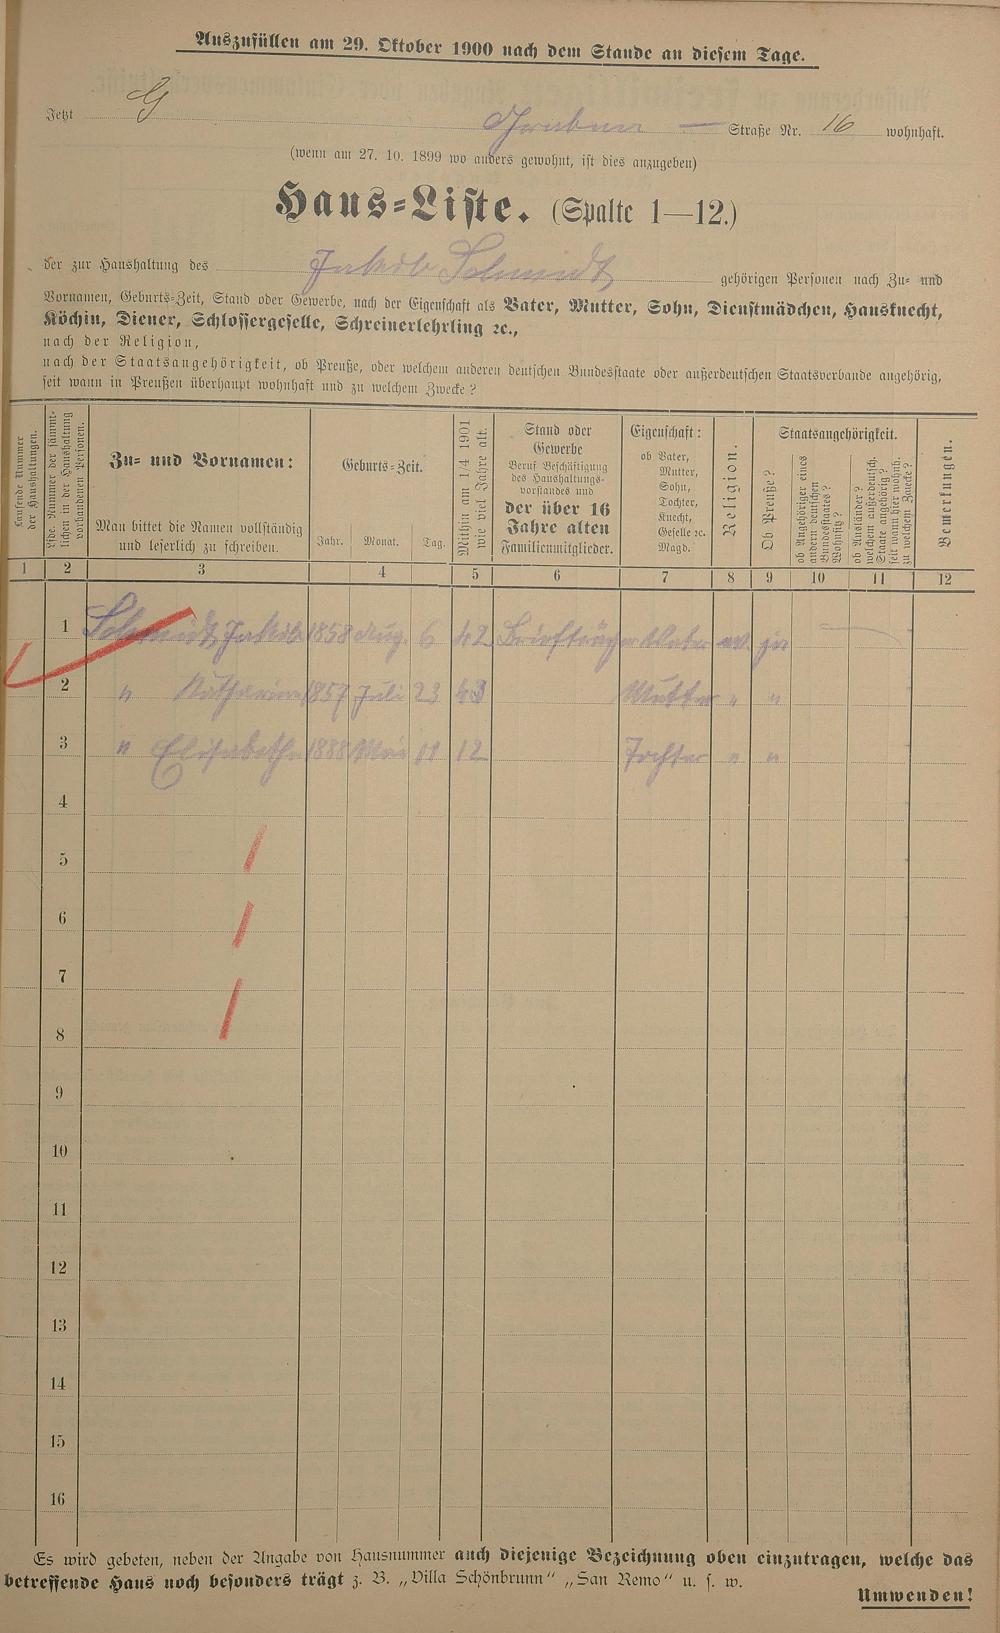 Auszufüllen am 29. Oktober 1900 nach dem Stande an diesem Tage.
Jetzt G Gruben — Straße Nr. 16 wohnhaft.
(wenn am 27. 10. 1899 wo anders gewohnt, ist dies anzugeben)
Haus-Liste. (Spalte 1—12.)
der zur Haushaltung des Jakob Schmidt gehörigen Personen nach Zu- und
Vornamen, Geburts-Zeit, Stand oder Gewerbe, nach der Eigenschaft als Vater, Mutter, Sohn, Dienstmädchen, Hausknecht,
Köchin, Diener, Schlossergeselle, Schreinerlehrling ꝛc.,
nach der Religion,
nach der Staatsangehörigkeit, ob Preuße, oder welchem anderen deutschen Bundesstaate oder außerdeutschen Staatsverbande angehörig,
seit wann in Preußen überhaupt wohnhaft und zu welchem Zwecke?
Laufende Nummer
der Haushaltungen.
Lfde. Nummer der sämmt-
lichen in der Haushaltung
vorhandenen Personen.
Zu- und Vornamen:
Man bittet die Namen vollständig
und leserlich zu schreiben.
Geburts-Zeit.
Jahr. Monat. Tag.
Mithin am 1/4 1901
wie viel Jahre alt.
Stand oder
Gewerbe
Beruf Beschäftigung
des Haushaltungs-
vorstandes und
der über 16
Jahre alten
Familienmitglieder.
Eigenschaft:
ob Vater,
Mutter,
Sohn,
Tochter,
Knecht,
Geselle ꝛc.
Magd.
Religion.
Staatsangehörigkeit.
Ob Preuße?
ob Angehöriger eines
andern deutschen
Bundesstaates?
Wohnsitz?
ob Ausländer?
welchem außerdeutsch.
Staate angehörig?
seit wann hier wohnh.
zu welchem Zwecke?
Bemerkungen.
1 2 3 4 5 6 7 8 9 10 11 12
1 Schmidt Jakob 1858 Aug. 6 42 Briefträger Vater ev. ja
2 " Katharina 1857 Juli 23 43 Mutter " "
3 " Elisabetha 1888 Mai 11 12 Tochter " "
4
5
6
7
8
9
10
11
12
13
14
15
16
Es wird gebeten, neben der Angabe von Hausnummer auch diejenige Bezeichnung oben einzutragen, welche das
betreffende Haus noch besonders trägt z. B. „Villa Schönbrunn“ „San Remo“ u. s. w.
Umwenden!